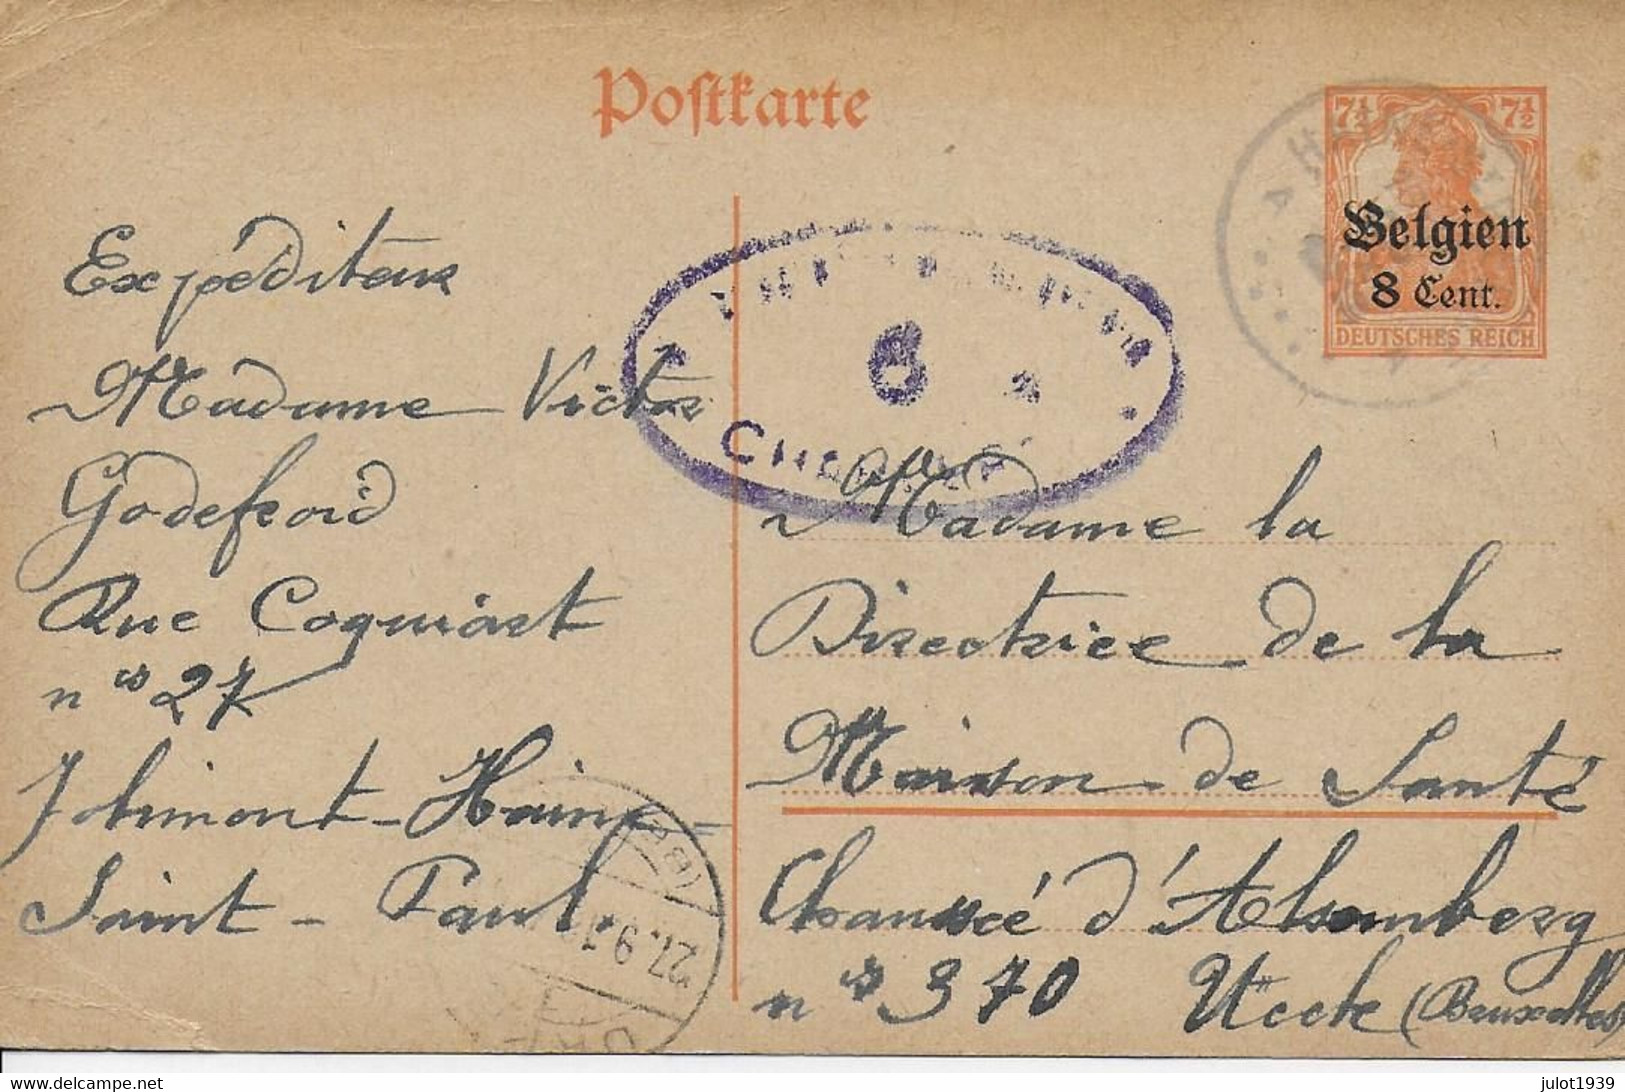 Postkarte
7½ 7½
Belgien
8 Cent.
DEUTSCHES REICH
Expéditeur
Madame Victor
Godefroid
Rue Coquiart
n° 27
Jolimont - Haine-
Saint - Paul.
6
Madame la
Directrice de la
Maison de Santé
Chaussée d'Alsemberg
n° 370 Uccle (Bruxelles)
27.9.
www.delcampe.net
julot1939